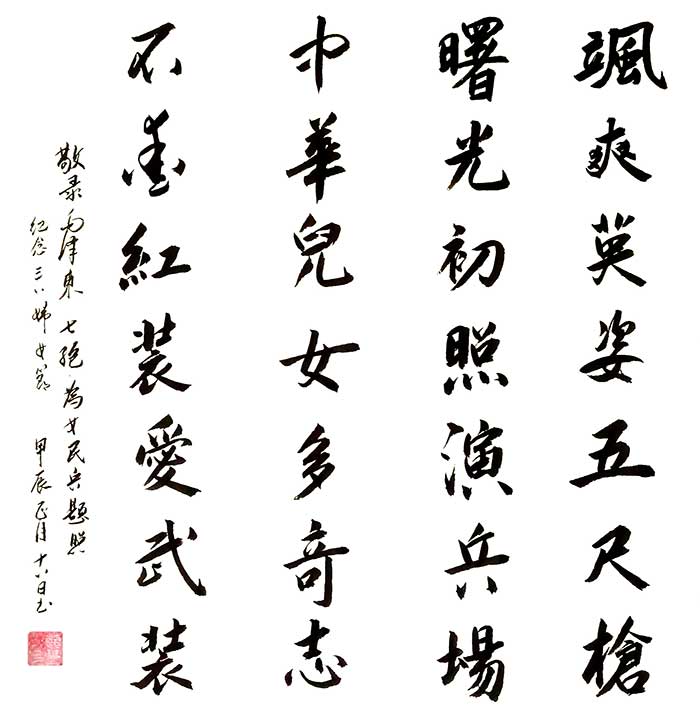 颯爽英姿五尺槍
曙光初照演兵場
中華兒女多奇志
不愛紅装愛武装
敬录毛泽東七绝·為女民兵题照
纪念三八婦女節 甲辰正月十八日书